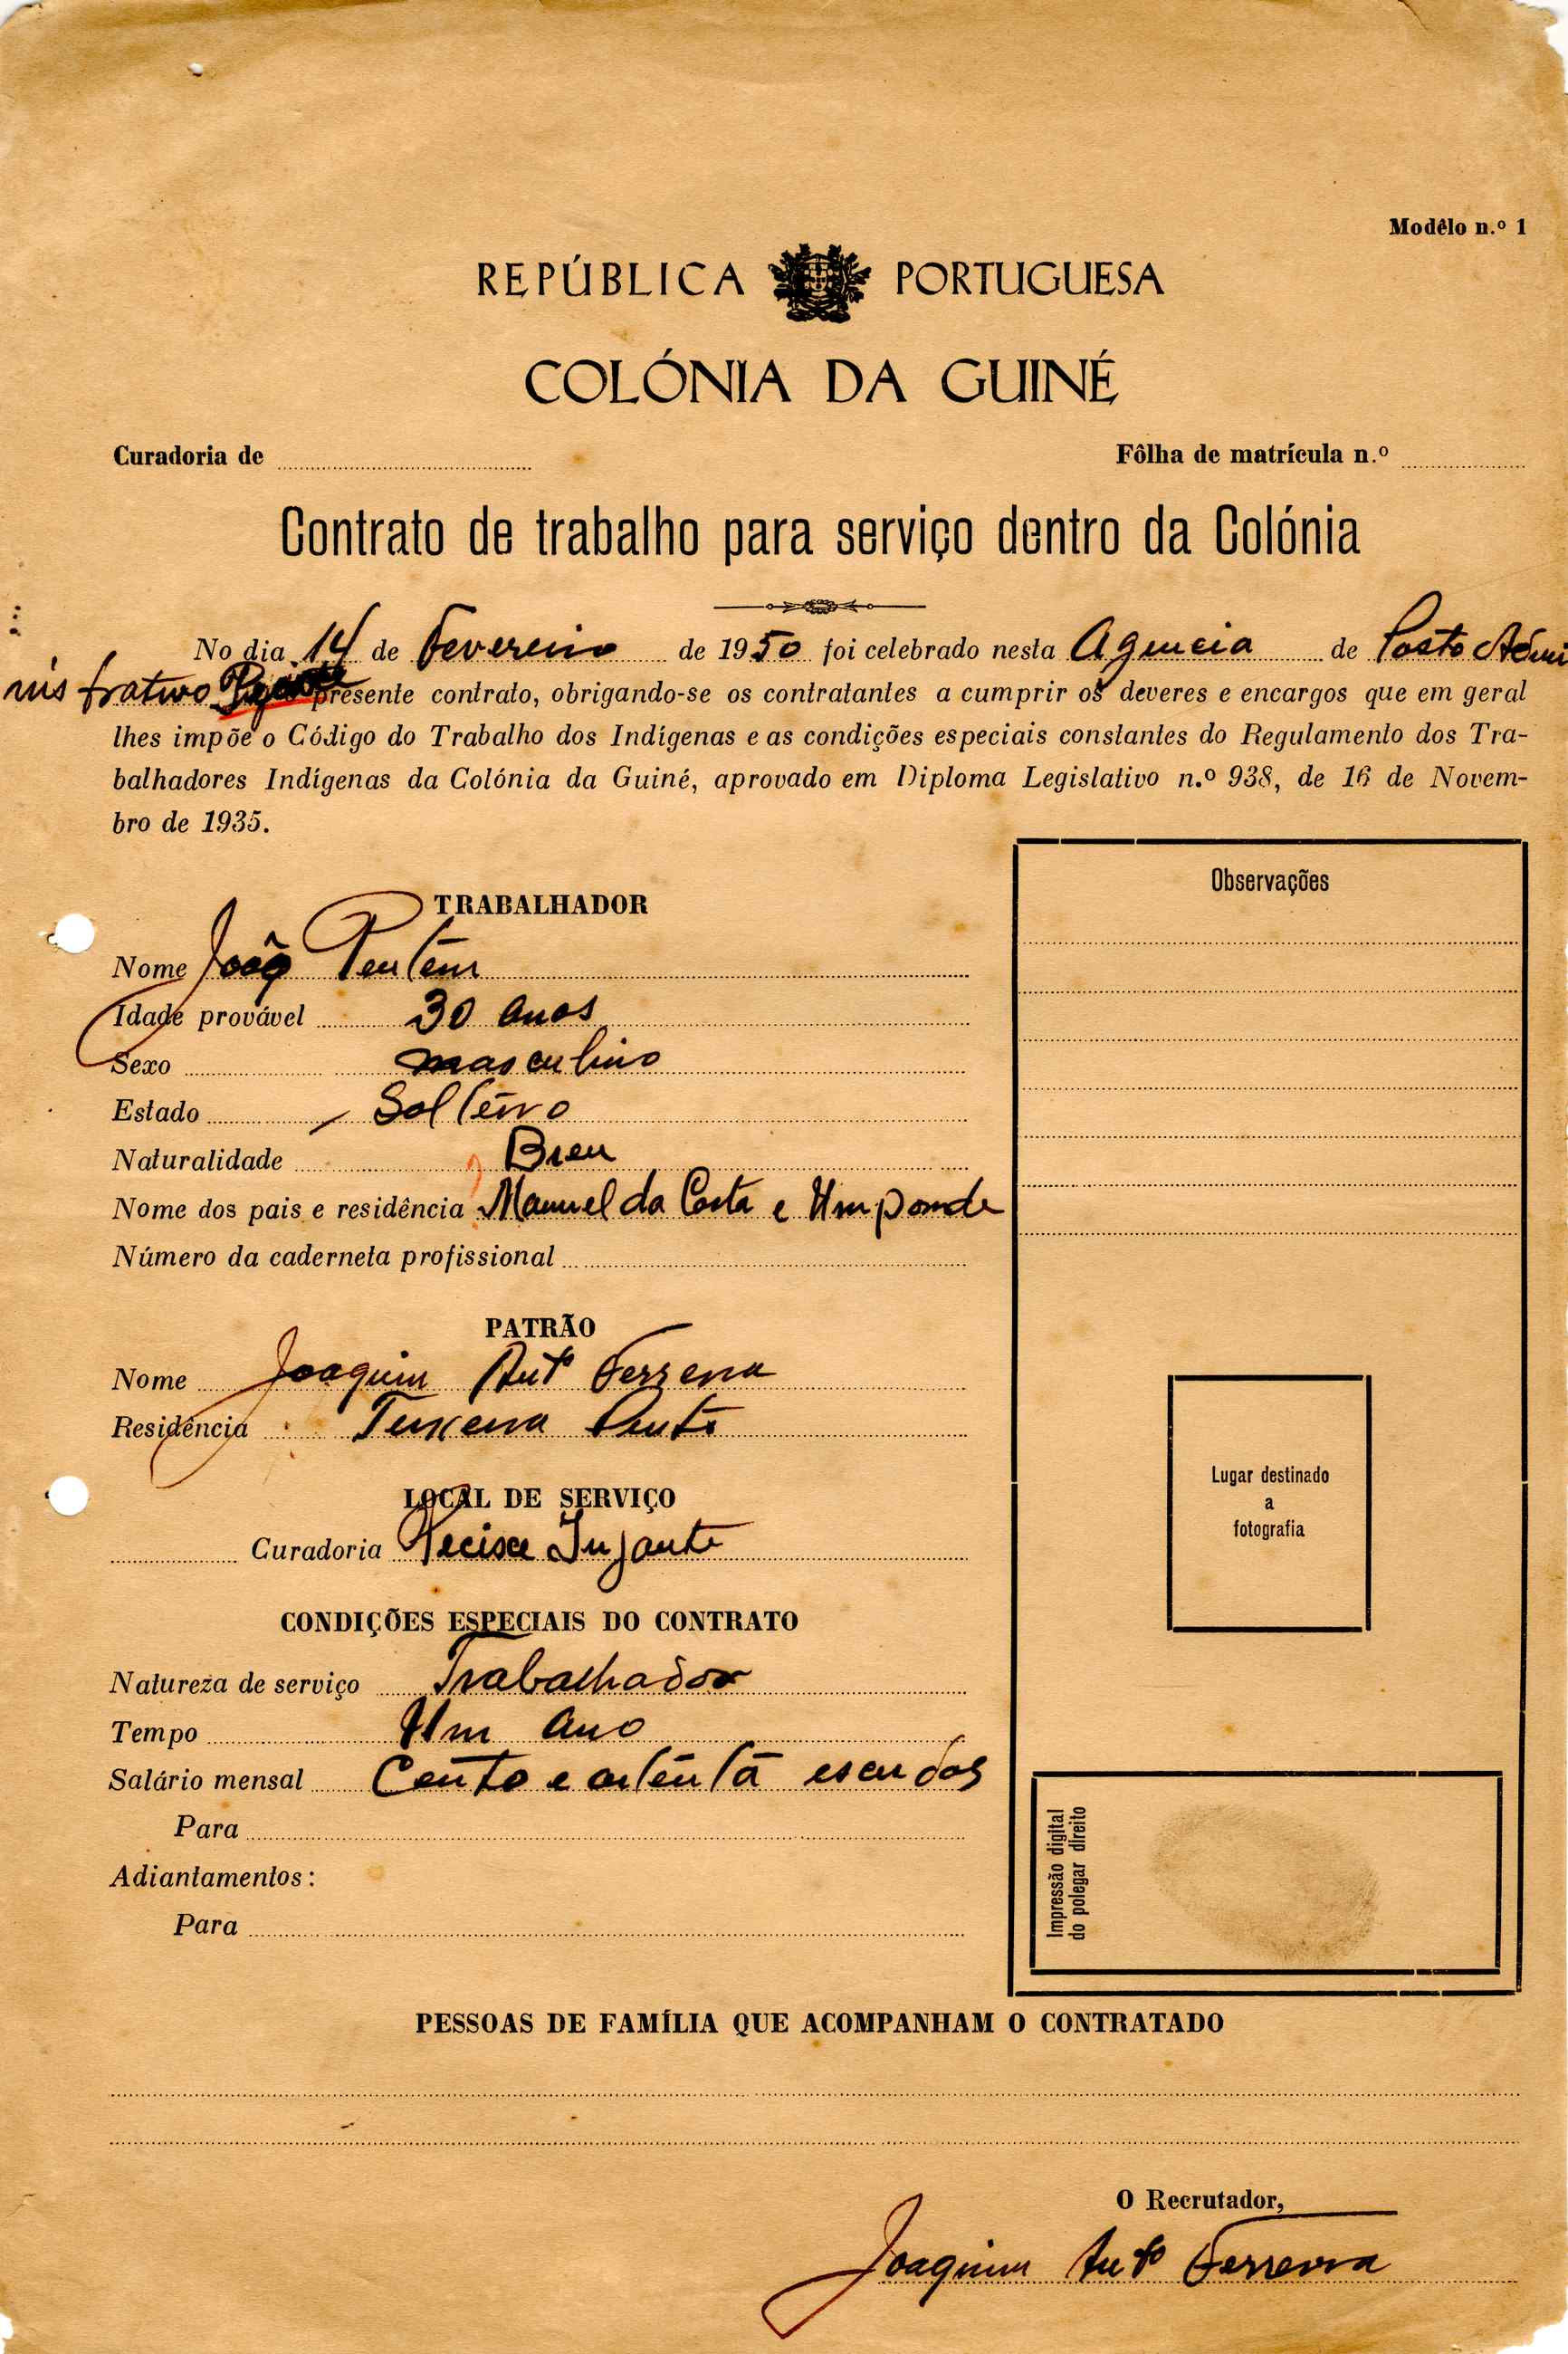 Modêlo n.º 1
REPÚBLICA PORTUGUESA
COLÓNIA DA GUINÉ
Curadoria de
Fôlha de matrícula n.º
Contrato de trabalho para serviço dentro da Colónia
No dia 14 de Fevereiro de 1950 foi celebrado nesta Agencia de Posto Admi
nistrativo presente contrato, obrigando-se os contratantes a cumprir os deveres e encargos que em geral
lhes impõe o Código do Trabalho dos Indígenas e as condições especiais constantes do Regulamento dos Tra-
balhadores Indígenas da Colónia da Guiné, aprovado em Diploma Legislativo n.º 938, de 16 de Novem-
bro de 1935.
Observações
TRABALHADOR
Nome João
Idade provável 30 anos
Sexo masculino
Estado Solteiro
Naturalidade
Nome dos pais e residência Manuel da Costa e
Número da caderneta profissional
PATRÃO
Nome Joaquim Antº Ferreira
Residência Teixeira Pinto
Lugar destinado
a
fotografia
LOCAL DE SERVIÇO
Curadoria Pecixe Infante
CONDIÇÕES ESPECIAIS DO CONTRATO
Natureza de serviço Trabalhador
Tempo Um ano
Salário mensal Cento e oitenta escudos
Para
Adiantamentos:
Para
Impressão digital
do polegar direito
PESSOAS DE FAMÍLIA QUE ACOMPANHAM O CONTRATADO
O Recrutador,
Joaquim Antº Ferreira